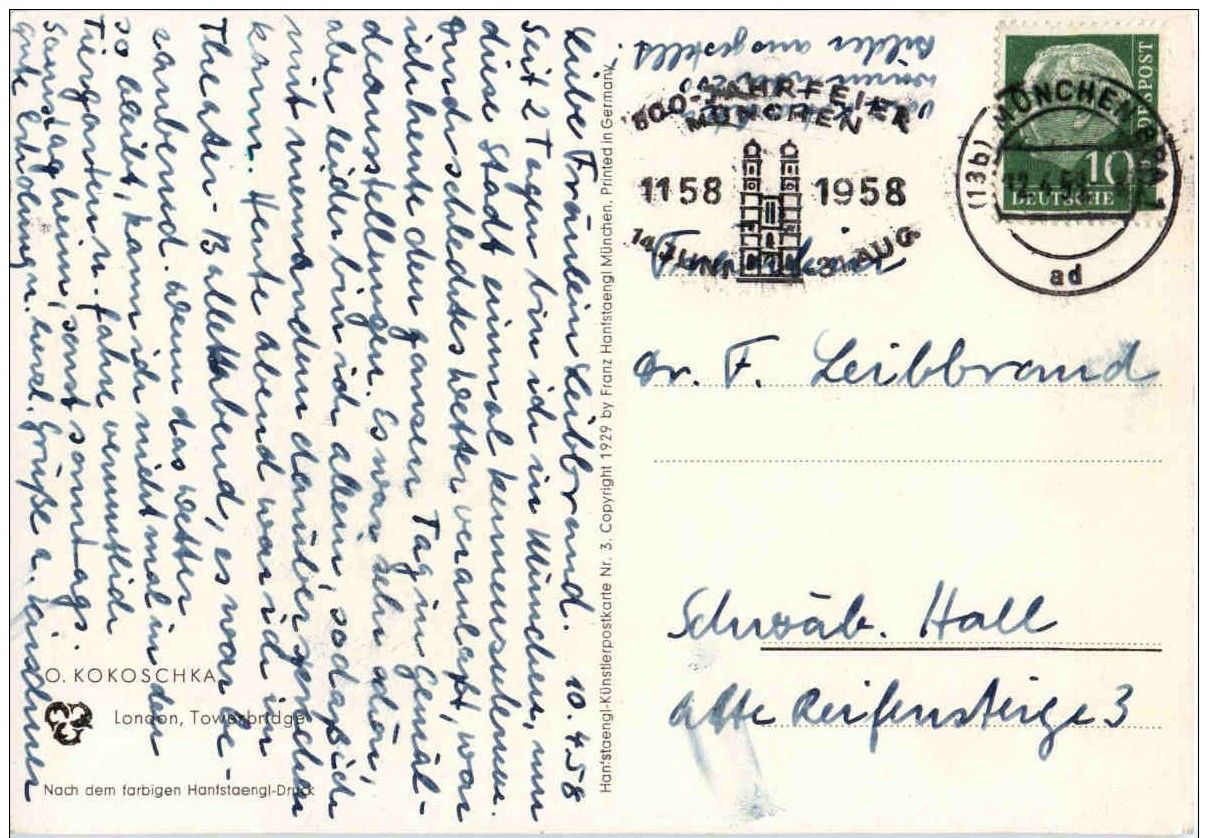 Liebe Fräulein Leibbrand. 10.4.58
Seit 2 Tagen bin ich in München, um
diese Stadt einmal kennenzulernen.
Durch schlechtes Wetter veranlaßt, war
ich heute den ganzen Tag in Gemäl-
deausstellungen. Es war sehr schön,
aber leider bin ich allein, sodaß ich
mit niemandem darüber sprechen
kann. Heute abend war ich im
Theater-Ballettabend, es war be-
zaubernd. Wenn das Wetter
so bleibt, kann ich nicht mal in den
Tiergarten u. fahre vermutlich
Samstag heim, sonst sonntags.
gute Erholung u. herzl. Grüße
O. KOKOSCHKA
London, Towerbridge
Nach dem farbigen Hanfstaengl-Druck
Hanfstaengl-Künstlerpostkarte Nr. 3. Copyright 1929 by Franz Hanfstaengl München, Printed in Germany
Bilder ausgestellt!
800-JAHRFEIER
MÜNCHEN
1158 1958
14. JUNI 31. AUG.
(13b) MÜNCHEN BPA 1
ad
DEUTSCHE BUNDESPOST
10
Fräulein
Dr. F. Leibbrand
Schwäb. Hall
Alte Reifensteige 3